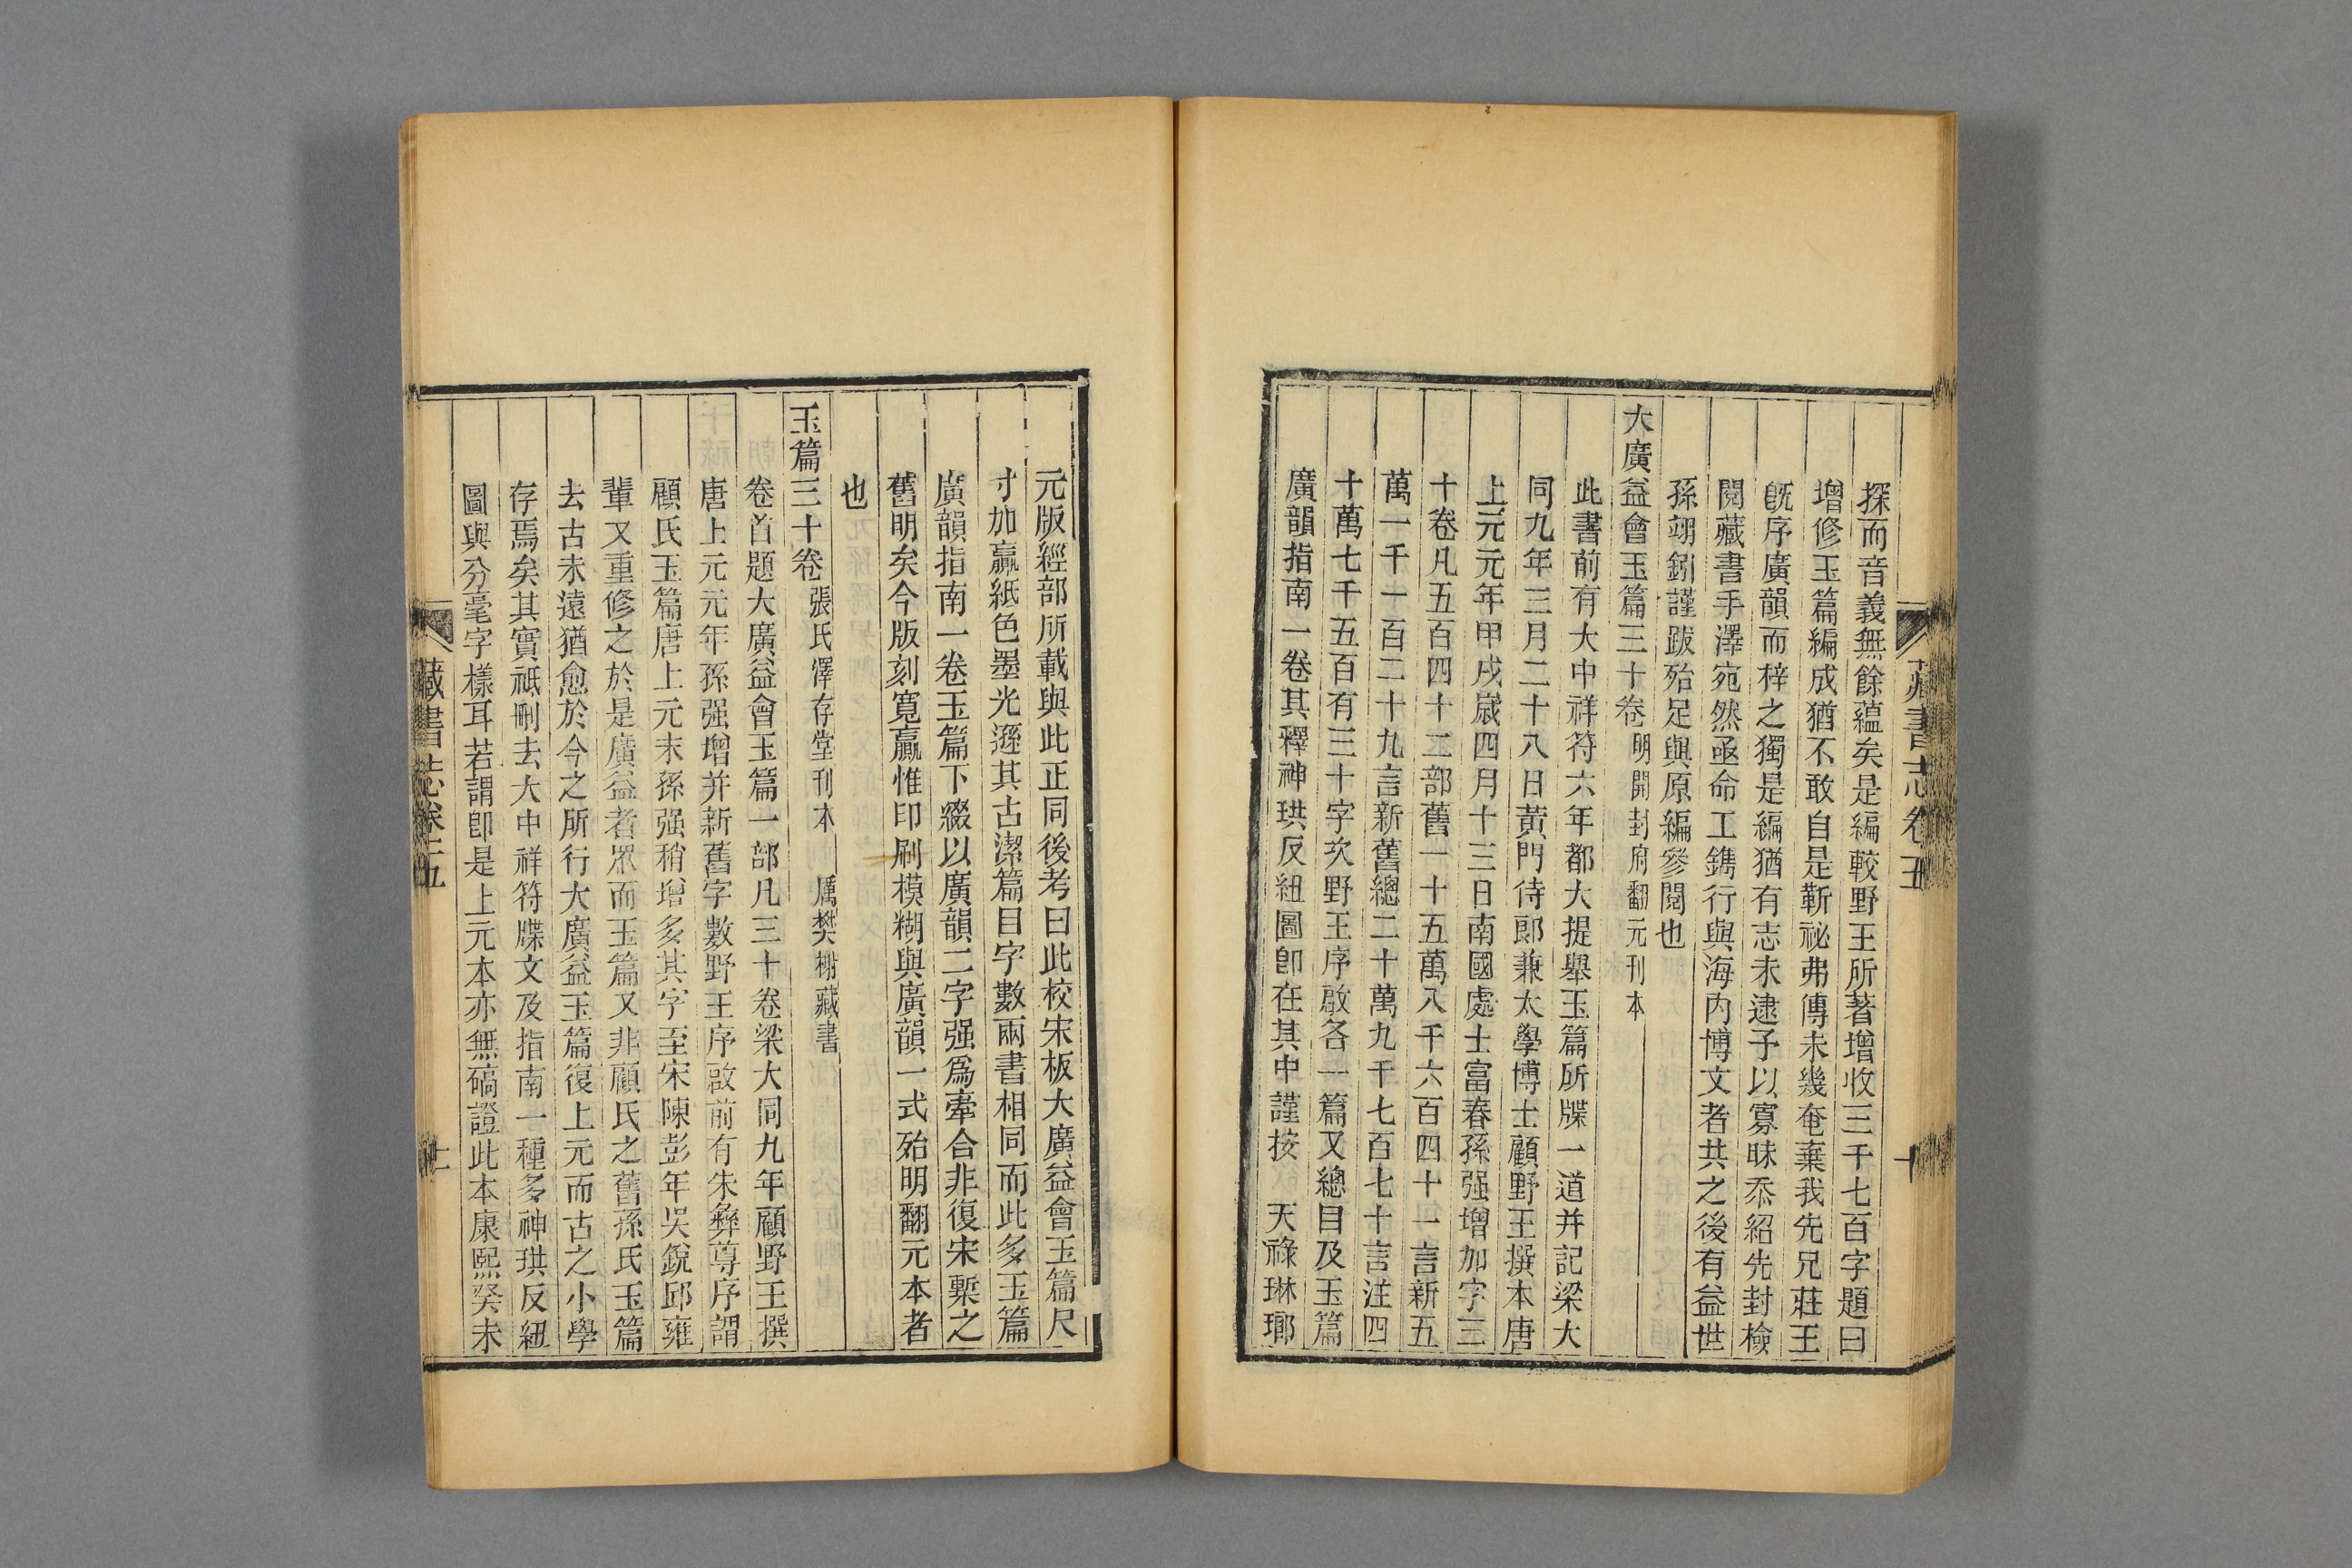 藏書志卷五
十
探而音義無餘蘊矣是編較野王所著增收三千七百字題曰
增修玉篇編成猶不敢自是靳祕弗傳未幾奄棄我先兄莊王
旣序廣韻而梓之獨是編猶有志未逮予以寡昧忝紹先封檢
閱藏書手澤宛然亟命工鐫行與海內博文者共之後有益世
孫翊鈏謹跋殆足與原編參閱也
大廣益會玉篇三十卷 明開封府翻元刊本
此書前有大中祥符六年都大提舉玉篇所牒一道并記梁大
同九年三月二十八日黃門侍郎兼太學博士顧野王撰本唐
上元元年甲戌歲四月十三日南國處士富春孫强增加字三
十卷凡五百四十二部舊一十五萬八千六百四十一言新五
萬一千一百二十九言新舊總二十萬九千七百七十言注四
十萬七千五百有三十字次野王序啟各一篇又總目及玉篇
廣韻指南一卷其釋神珙反紐圖卽在其中謹按 天祿琳瑯
元版經部所載與此正同後考曰此校宋板大廣益會玉篇尺
寸加贏紙色墨光遜其古潔篇目字數兩書相同而此多玉篇
廣韻指南一卷玉篇下綴以廣韻二字强爲牽合非復宋槧之
舊明矣今版刻寬贏惟印刷模糊與廣韻一式殆明翻元本者
也
玉篇三十卷 張氏澤存堂刊本 厲樊榭藏書
卷首題大廣益會玉篇一部凡三十卷梁大同九年顧野王撰
唐上元元年孫强增并新舊字數野王序啟前有朱彝尊序謂
顧氏玉篇唐上元末孫强稍增多其字至宋陳彭年吳銳邱雍
輩又重修之於是廣益者眾而玉篇又非顧氏之舊孫氏玉篇
去古未遠猶愈於今之所行大廣益玉篇復上元而古之小學
存焉矣其實祗刪去大中祥符牒文及指南一種多神珙反紐
圖與分毫字樣耳若謂卽是上元本亦無碻證此本康熙癸未
藏書志卷五